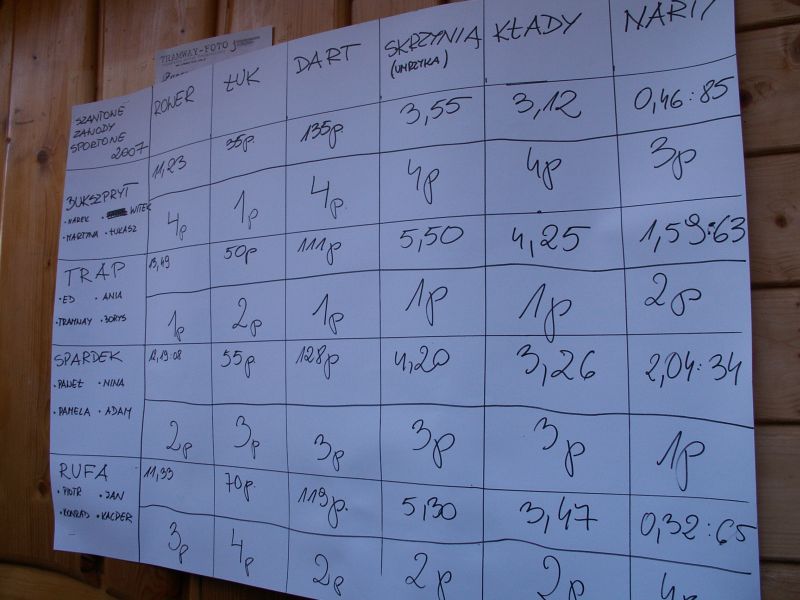 TRAMWAY-FOTO
SZANTOWE
ZAWODY
SPORTOWE
2007
ROWER
ŁUK
DART
SKRZYNIA
(UMRZYKA)
KŁADY
NARTY
BUKSZPRYT
• MAREK • WITEK
• MARTYNA • ŁUKASZ
11,23 35p. 135p. 3,55 3,12 0,46:85
4p 1p 4p. 4p 4p 3p
TRAP
• ED • ANIA
• TRAMWAY • BORYS
13,49 50p 111p 5,50 4,25 1,59:63
1p 2p 1p 1p 1p 2p
SPARDEK
• PAWEŁ • NINA
• PAMELA • ADAM
12,19:08 55p 128p 4,20 3,26 2,04:34
2p 3p 3p 3p 3p 1p
RUFA
• PIOTR • JAN
• KONRAD • KACPER
11,33 70p. 119p. 5,30 3,47 0,32:65
3p 4p 2p 2p 2p 4p